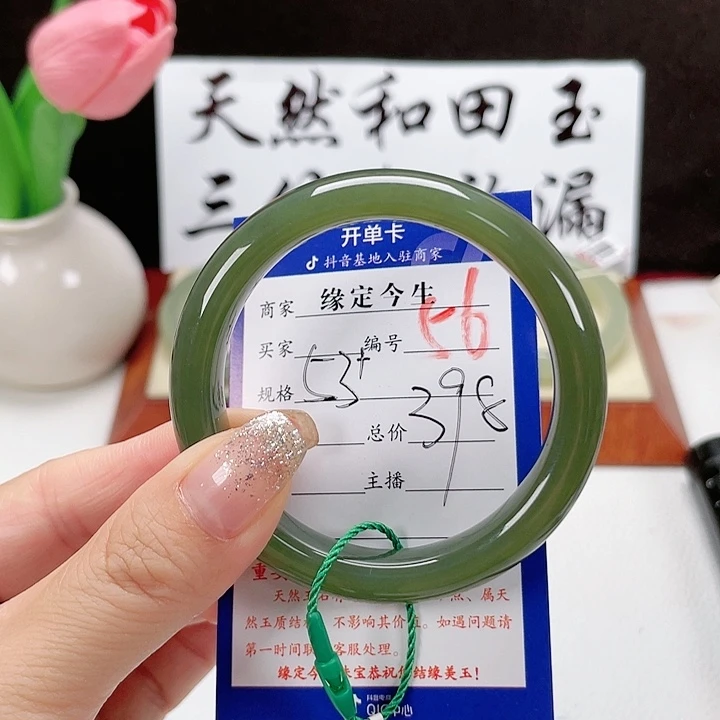 天然和田玉
三
漏
开单卡
抖音基地入驻商家
商家 缘定今生
买家 编号 56
规格 53+
总价 398
主播
重
天然玉石 点、属天
然玉质结 不影响其价值。如遇问题请
第一时间联 客服处理。
缘定今 珠宝恭祝您结缘美玉!
抖音电商
QIC中心